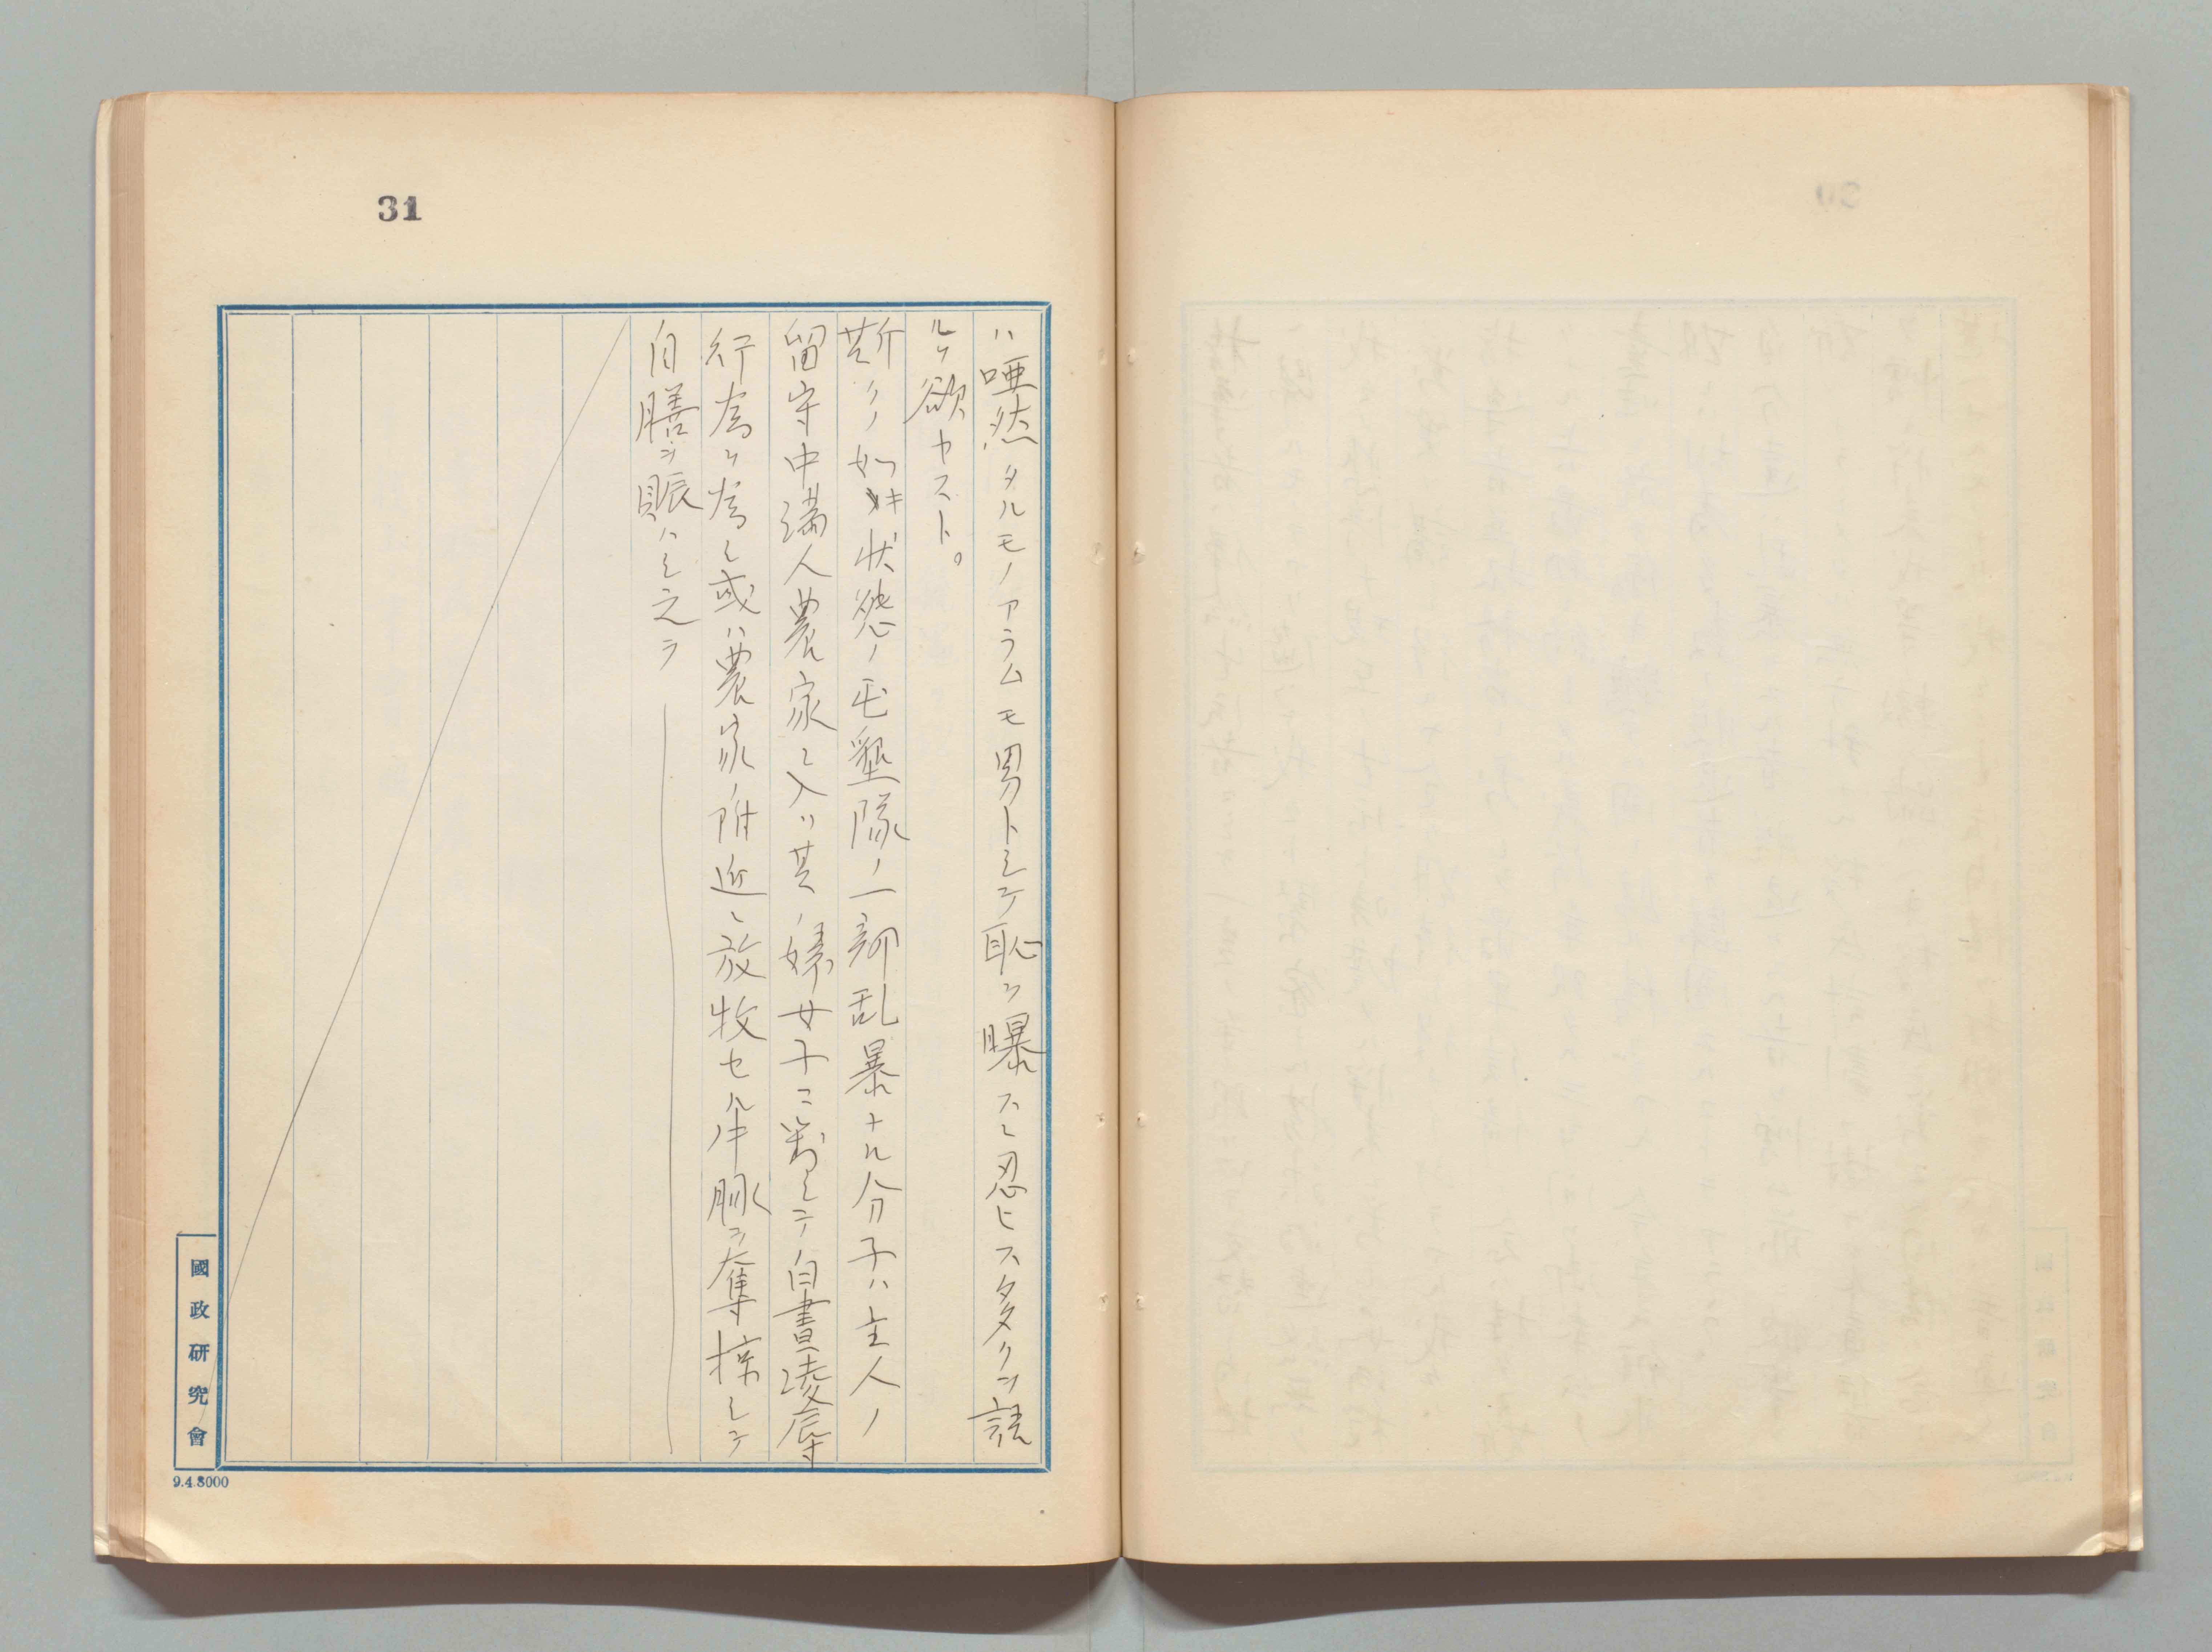 31
ハ唖然タルモノアラムモ男トシテ恥ヲ曝スニ忍ヒス多クヲ語
ルヲ欲セスト。
斯クノ如キ状態ノ屯墾隊ノ一部乱暴ナル分子ハ主人ノ
留守中満人農家ニ入リ其ノ婦女子ニ対シテ白晝凌辱
行為ヲ為シ或ハ農家ノ附近ニ放牧セル牛豚ヲ奪掠シテ
自膳ヲ賑ハシ之ヲ
國政研究會
9.4.8000